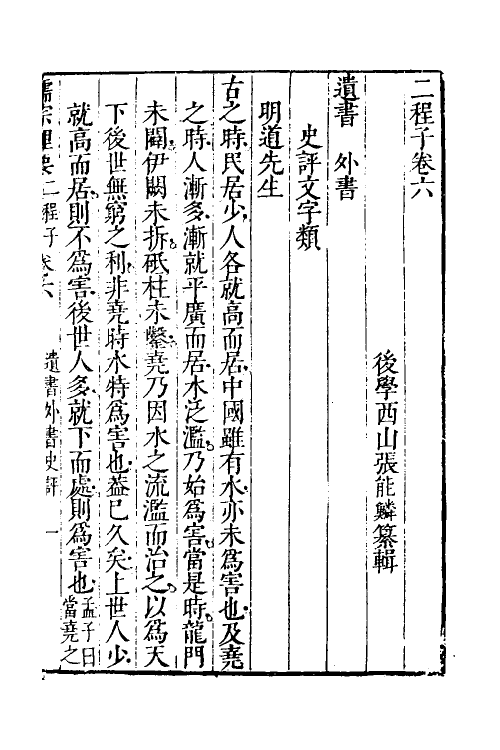 二程子卷六
後學西山張能鱗纂輯
遺書　外書
史評文字類
明道先生
古之時民居少人各就高而居中國雖有水亦未爲害也及堯
之時人漸多漸就平廣而居水泛濫乃始爲害當是時龍門
未闢伊闕未拆砥柱未鑿堯乃因水之流濫而治之以爲天
下後世無窮之利非堯時水特爲害也葢已久矣上世人少
就高而居則不爲害後世人多就下而處則爲害也孟子曰
當堯之
儒宗理要二程子卷六　遺書外書史評　一